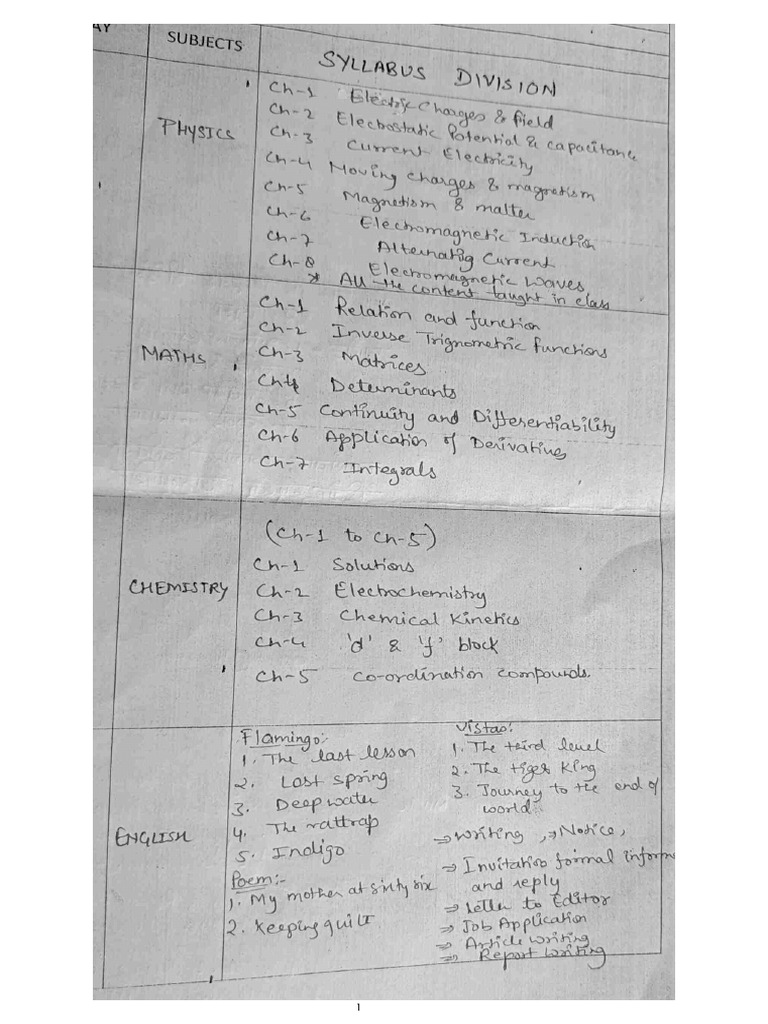 AY
SUBJECTS
SYLLABUS DIVISION
PHYSICS
Ch-1 Electric Charges & field
Ch-2 Electrostatic Potential & capacitance
Ch-3 Current Electricity
Ch-4 Moving charges & magnetism
Ch-5 Magnetism & matter
Ch-6 Electromagnetic Induction
Ch-7 Alternatig Current
Ch-8 Electromagnetic Waves
* All the content taught in class
MATHS
Ch-1 Relation and function
Ch-2 Inverse Trignometric functions
Ch-3 Matrices
Ch4 Determinants
Ch-5 Continuity and Differentiability
Ch-6 Application of Derivatives
Ch-7 Integrals
CHEMISTRY
(Ch-1 to Ch-5)
Ch-1 Solutions
Ch-2 Electrochemistry
Ch-3 Chemical Kinetics
Ch-4 'd' & 'f' block
Ch-5 Co-ordination compounds.
ENGLISH
Flamingo:-
1. The last lesson
2. Lost spring
3. Deep water
4. The rattrap
5. Indigo
Poem:-
1. My mother at sixty six
2. Keeping quilt
Vistas:
1. The third level
2. The tiger King
3. Journey to the end of
world
⇒ Writing, ⇒ Notice,
⇒ Invitation formal inform
and reply
⇒ Letter to Editor
⇒ Job Application
⇒ Article writing
⇒ Report Writing
1